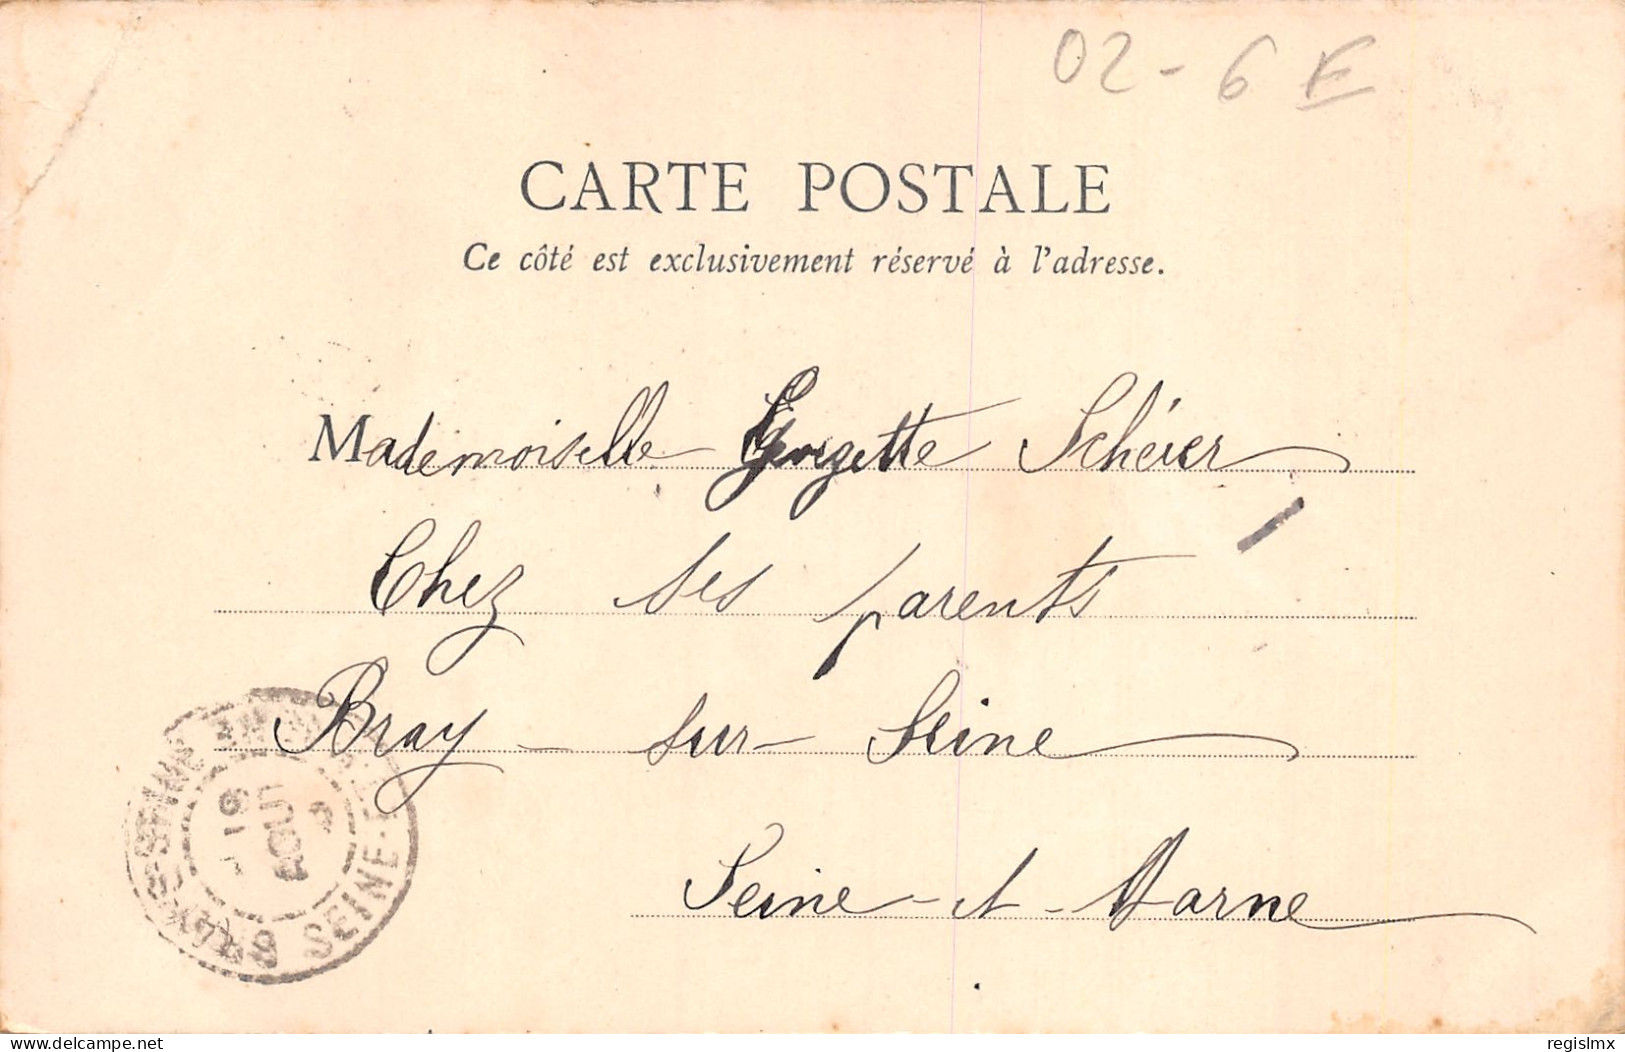 02 - 6 E
CARTE POSTALE
Ce côté est exclusivement réservé à l'adresse.
Mademoiselle Georgette Schéier
Chez ses parents
Bray - sur - Seine
Seine - et - Marne
BRAY-S-SEINE SEINE-ET-MARNE
AOUT
delcampe.net
regislmx